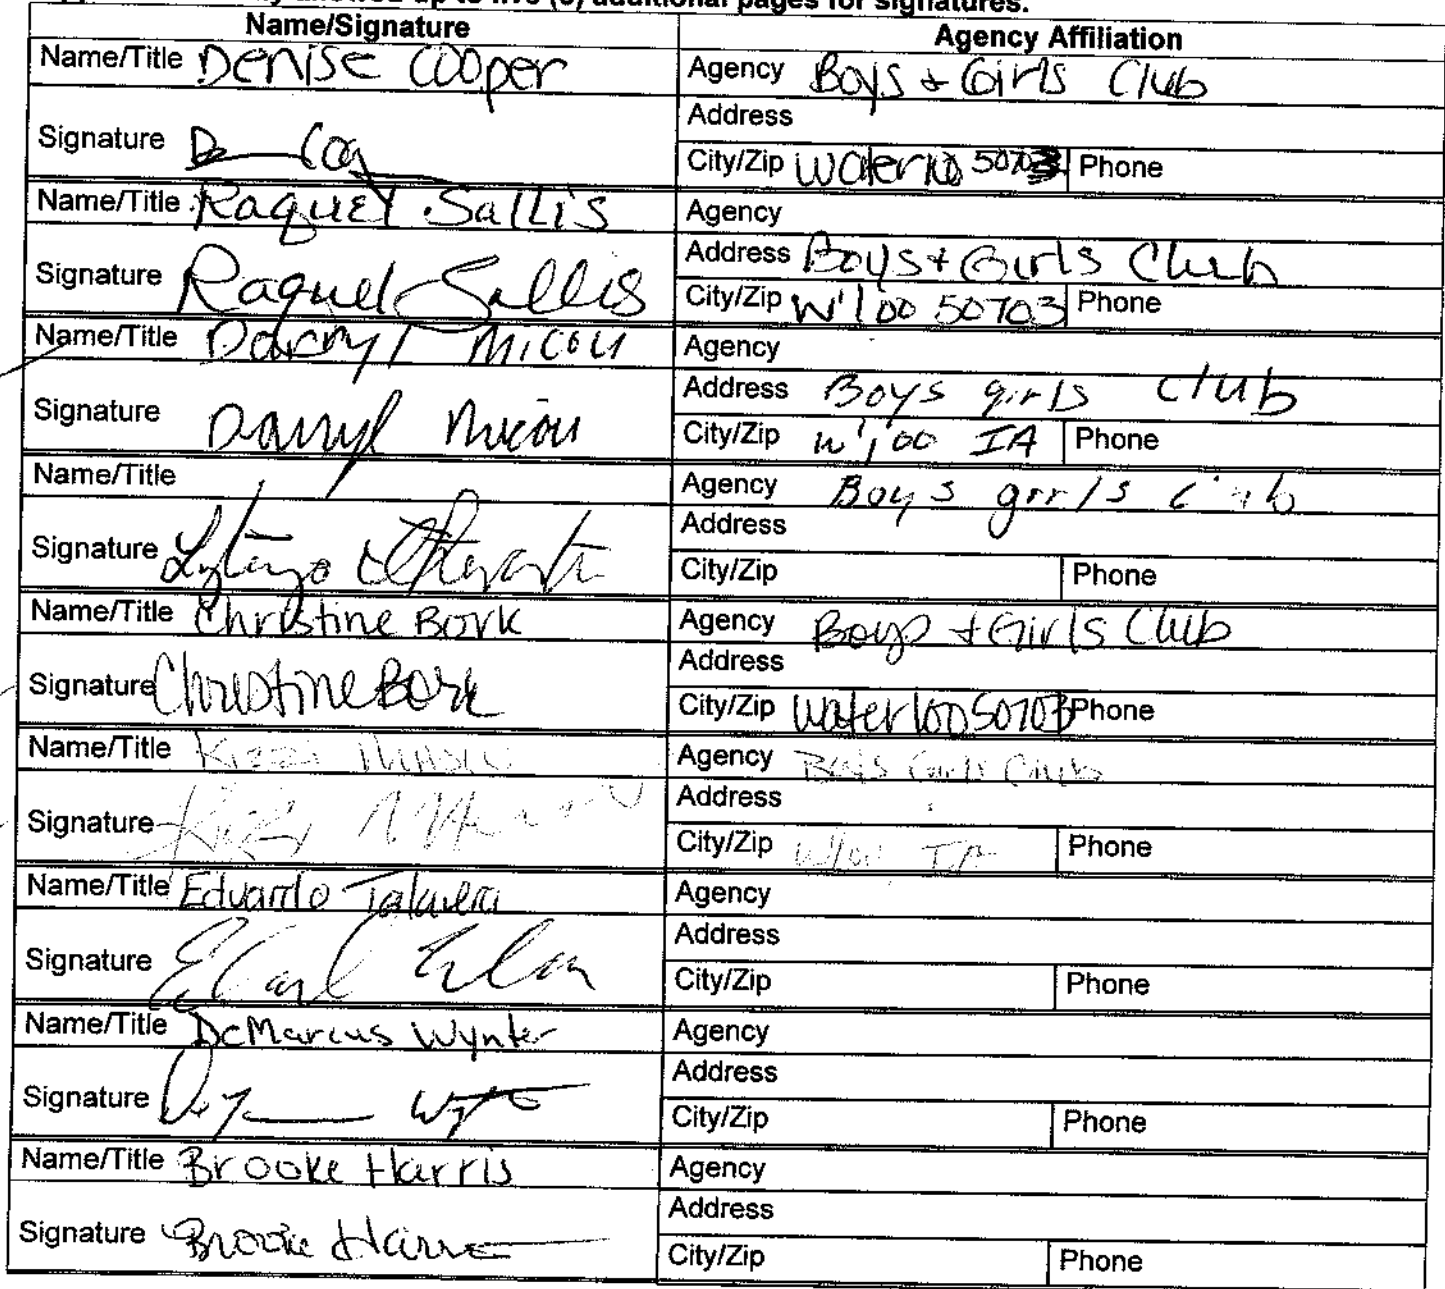 allowed up to five (5) additional pages for signatures.
Name/Signature Agency Affiliation
Name/Title Denise Cooper Agency Boys + Girls Club
Address
Signature City/Zip Waterloo 50703 Phone
Name/Title Raquel Sallis Agency
Signature Raquel Sallis Address Boys + Girls Club
City/Zip W'loo 50703 Phone
Name/Title Darryl Micou Agency
Signature Darryl Micou Address Boys girls club
City/Zip w'loo IA Phone
Name/Title Agency Boys girls club
Signature Address
City/Zip Phone
Name/Title Christine Bork Agency Boys + Girls Club
Signature Christine Bork Address
City/Zip Waterloo 50703 Phone
Name/Title Kizzi Agency Boys Girls Club
Signature Address
City/Zip W'loo IA Phone
Name/Title Eduardo Talavera Agency
Signature Address
City/Zip Phone
Name/Title DeMarcus Wynter Agency
Signature Address
City/Zip Phone
Name/Title Brooke Harris Agency
Signature Brooke Harris Address
City/Zip Phone